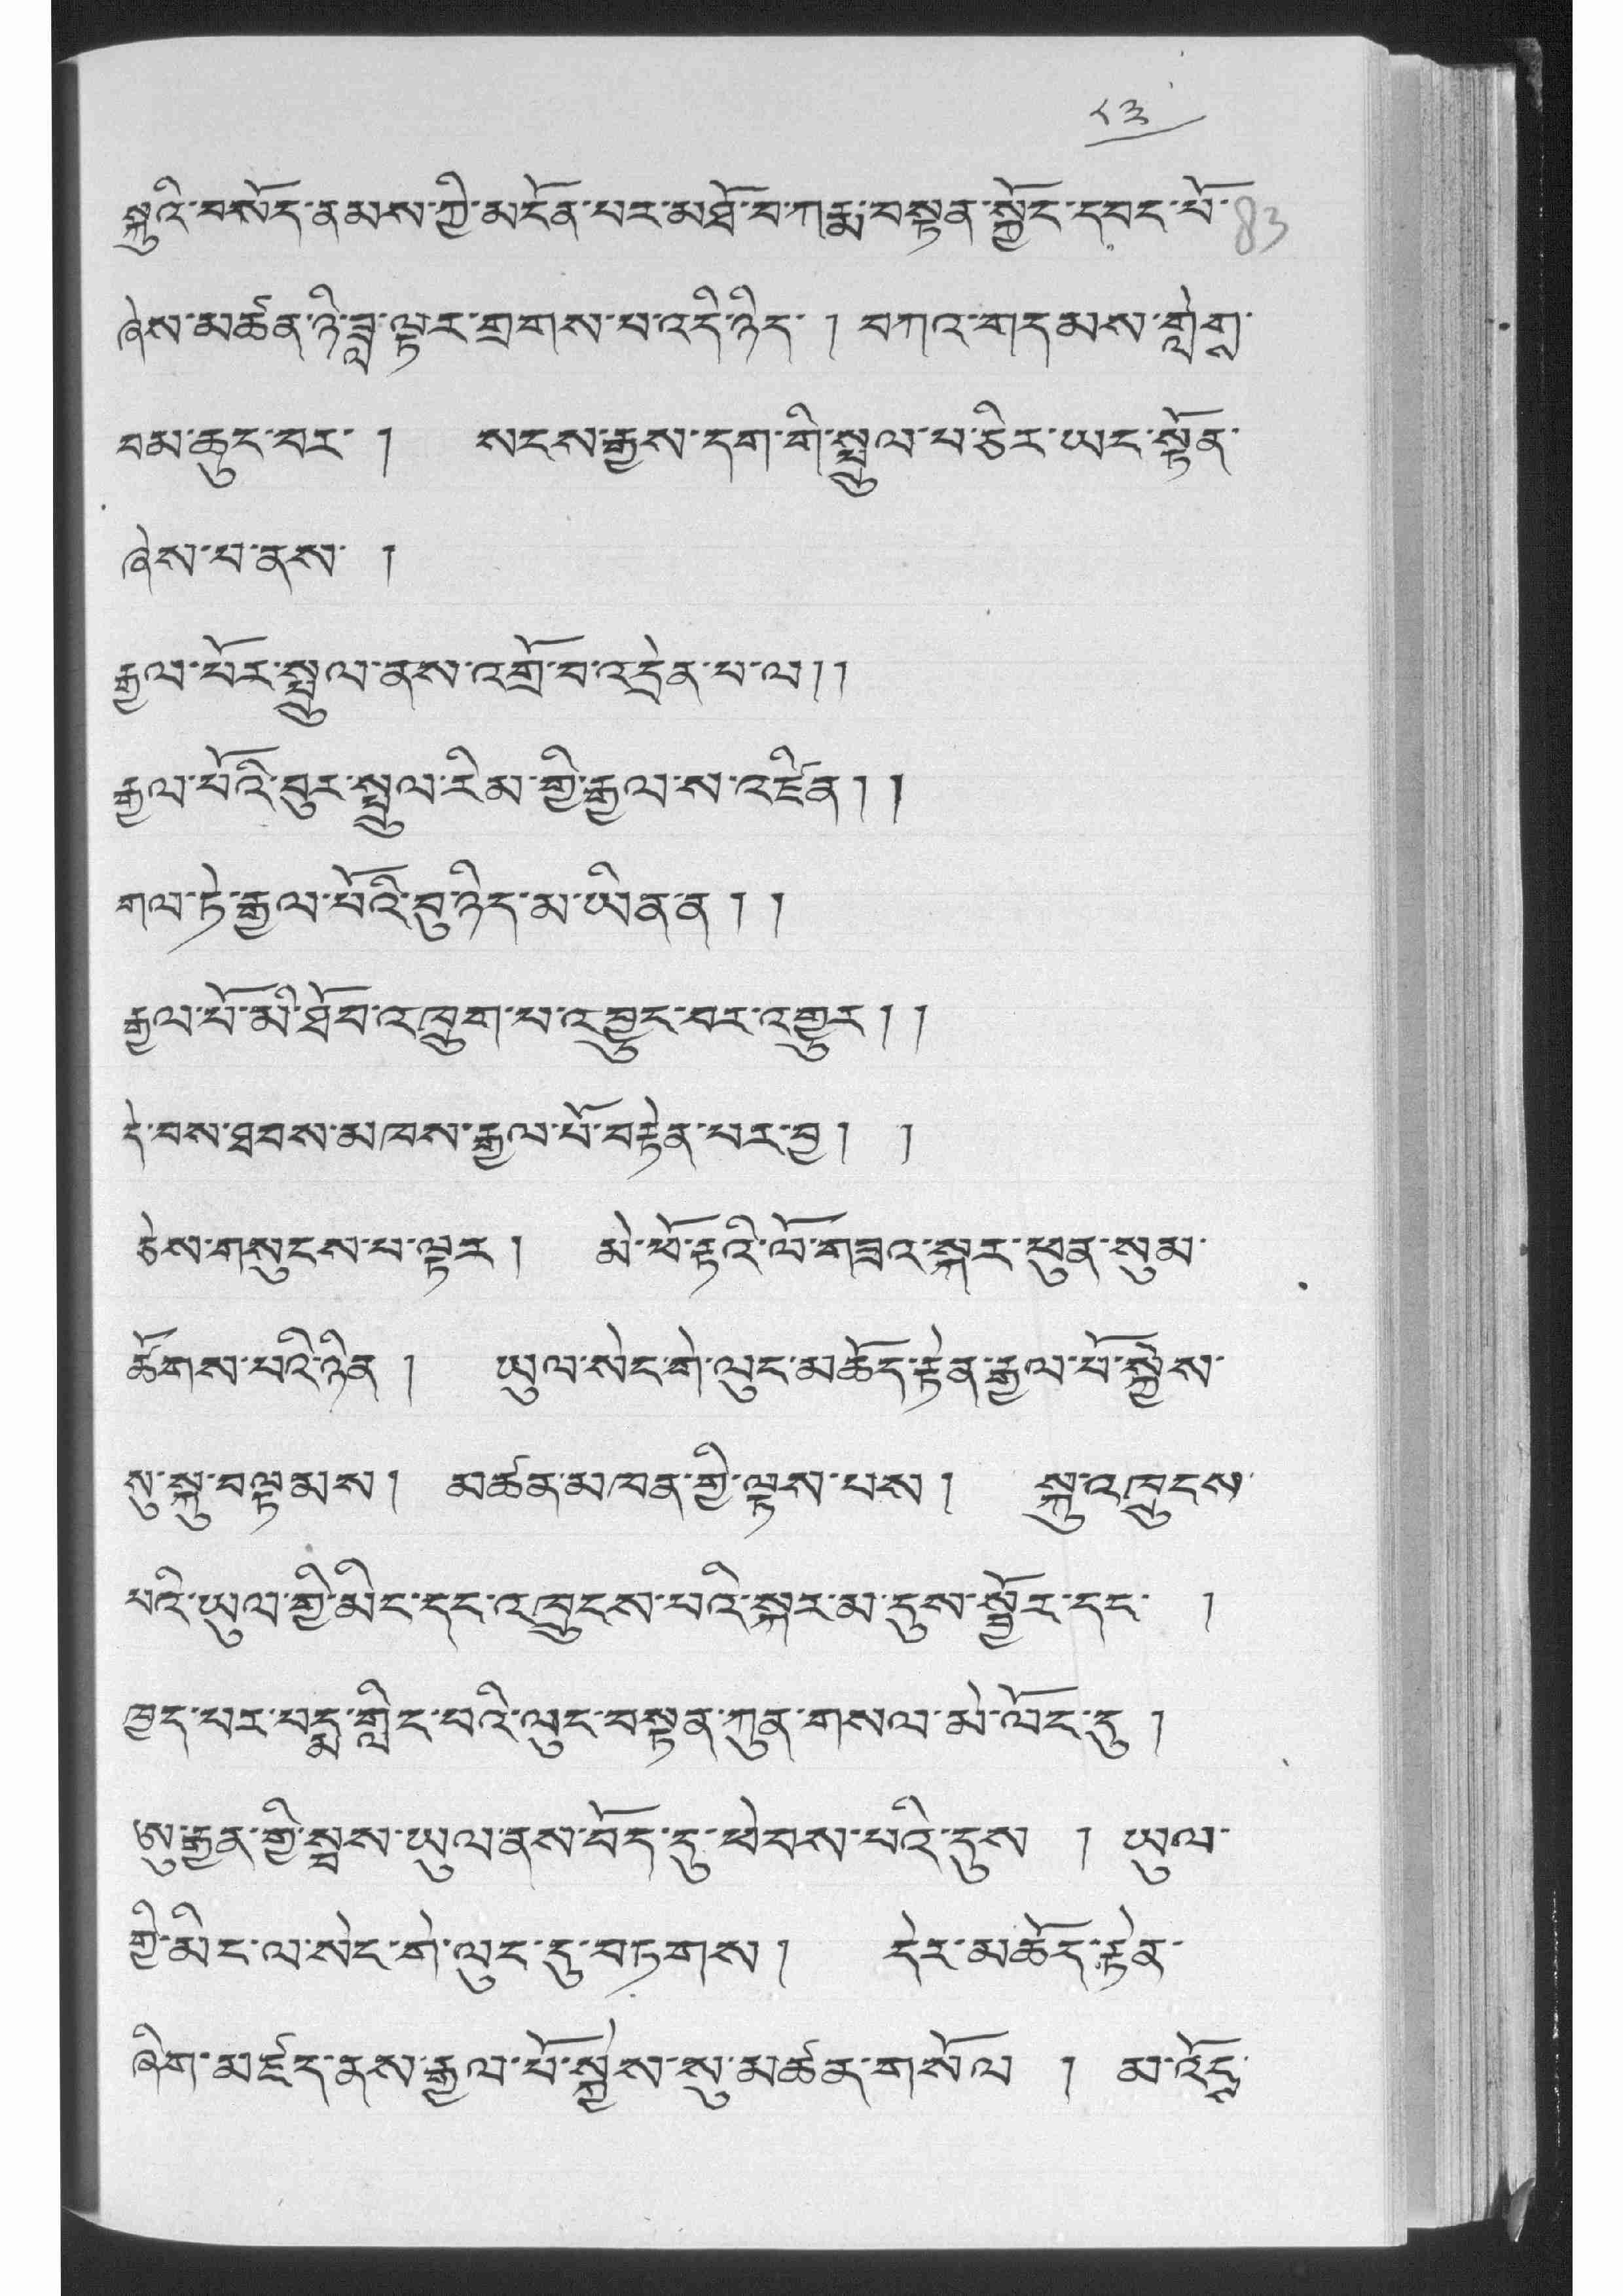 ༨༣
སྐུའི་བསོད་ནམས་ཀྱི་མངོན་པར་མཐོ་བ་ཀརྨ་བསྟན་སྐྱོང་དབང་པོ་ 83
ཞེས་མཚན་ཉི་ཟླ་ལྟར་གྲགས་པ་འདི་ཉིད་ ། བཀའ་གདམས་གླེགྦ་
བམ་ཆུང་བར་ ། སངས་རྒྱས་དག་གི་སྤྲུལ་པ་ཅིར་ཡང་སྟོན་
ཞེས་པ་ནས་ །
རྒྱལ་པོར་སྤྲུལ་ནས་འགྲོ་བ་འདྲེན་པ་ལ།།
རྒྱལ་པོའི་བུར་སྤྲུལ་རིམ་གྱི་རྒྱལ་ས་འཛིན།།
གལ་ཏེ་རྒྱལ་པོའི་བུ་ཉིད་མ་ཡིན་ན།།
རྒྱལ་པོ་མི་ཐོབ་འཁྲུག་པ་འབྱུང་བར་འགྱུར།།
དེ་བས་ཐབས་མཁས་རྒྱལ་པོ་བརྟེན་པར་བྱ། །
ཅེས་གསུངས་པ་ལྟར། མེ་ཕོ་རྟའི་ལོ་གཟའ་སྐར་ཕུན་སུམ་
ཚོགས་པའི་ཉིན། ཡུལ་སེང་གེ་ལུང་མཆོད་རྟེན་རྒྱལ་པོ་སྐྱེས་
སུ་སྐུ་བལྟམས། མཚན་མཁན་གྱི་ལྟས་པས། སྐུ་འཁྲུངས་
པའི་ཡུལ་གྱི་མིང་དང་འཁྲུངས་པའི་སྐར་མ་དུས་སྦྱོར་དང་ །
ཁྱད་པར་པདྨ་གླིང་པའི་ལུང་བསྟན་ཀུན་གསལ་མེ་ལོང་དུ།
ཨུ་རྒྱན་གྱི་སྦས་ཡུལ་ནས་བོད་དུ་ཕེབས་པའི་དུས ། ཡུལ་
གྱི་མིང་ལ་སེང་གེ་ལུང་དུ་བཏགས། དེར་མཆོད་རྟེན་
ཞིག་མཛད་ནས་རྒྱལ་པོ་སྐྱེས་སུ་མཚན་གསོལ ། མ་འོངྦ་